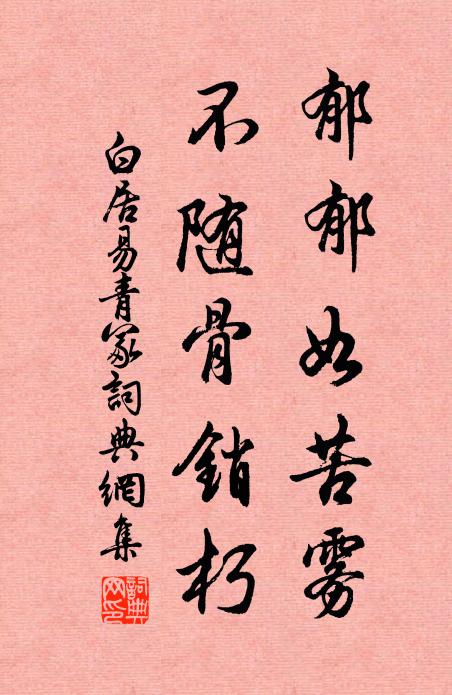 郁郁如苦雾
不随骨銷朽
白居易青冢詞典網集
詞典网印